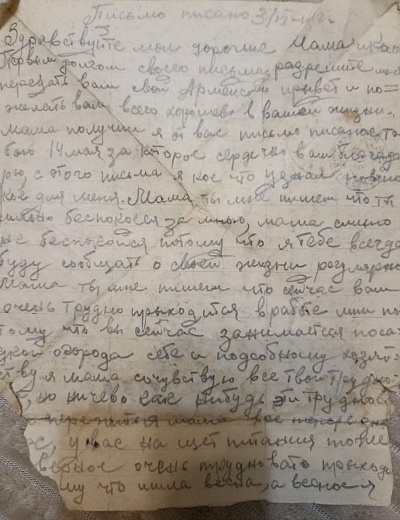 Письмо писано 3/VI-44г.
Здравствуйте мои дорогие Мама и
Первым долгом своего письма разрешите
передать вам свой Армейский привет и по=
желать вам всего хорошего в вашей жизни.
Мама получил я от вас письмо писаное то
бою 14 мая за которое сердечно вам благада
рю, с этого письма я кое что узнал нового
кое для меня. Мама, ты мне пишеш что ти
сильно беспокоеся за мною, мама сильно
не беспокойся потому что я тебе всегда
буду сообщать о своей жизни регулярно
Мама ты мне пишеш что сейчас вам
очень трудно прыходится в работе или по
тому что вы сейчас занимаится поса
дкой огорода себе и подсобному хозяй
ству я мама сочувствую все твои трудно
но ничево как нибудь эти труднос
мама все
с, у нас на щет питания тоже
верное очень трудновато прыходи
му что ишла весна, а весною я